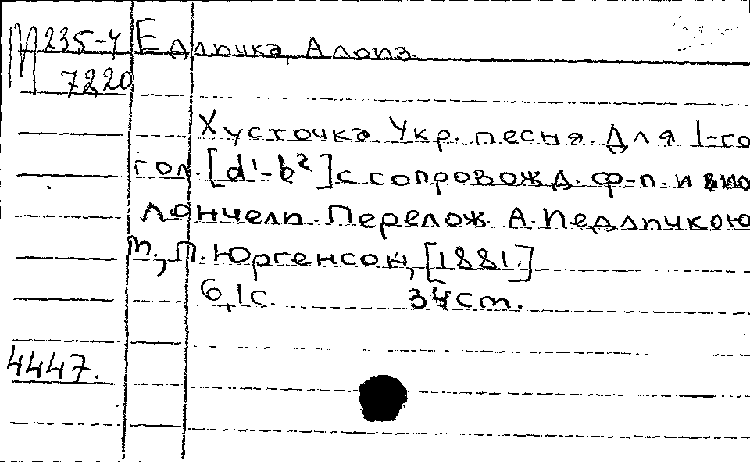 М 235-4 Едличка, Алоиз
7220
Хусточка. Укр. песня. Для 1-го
гол. [d¹-b²] с сопровожд. ф-п. и вио
лончели. Перелож. А. Иедличкою
М., П. Юргенсон, [1881.]
6,1с. 34 cm.
4447.